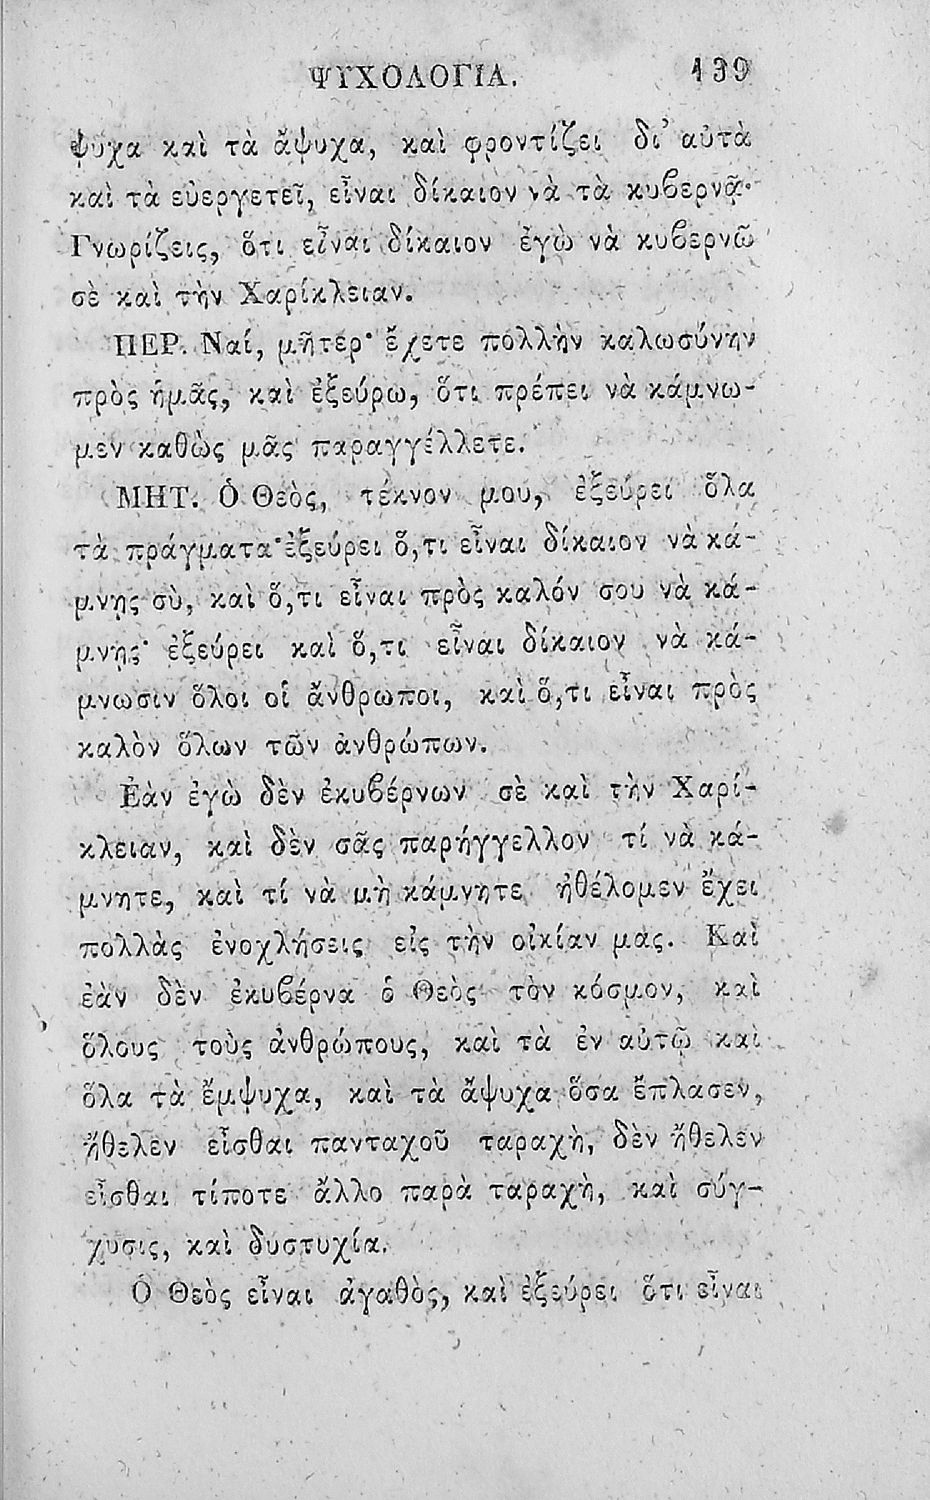 ΨΥΧΟΛΟΓΙΑ. 139
ψυχα καὶ τὰ ἄψυχα, καὶ φροντίζει δι᾽ αὐτὰ
καὶ τὰ εὐεργετεῖ, εἶναι δίκαιον νὰ τὰ κυβερνᾷ·
Γνωρίζεις, ὅτι εἶναι δίκαιον ἐγὼ νὰ κυβερνῶ
σὲ καὶ τὴν Χαρίκλειαν.
ΠΕΡ. Ναί, μῆτερ· ἔχετε πολλὴν καλωσύνην
πρὸς ἡμᾶς, καὶ ἐξεύρω, ὅτι πρέπει νὰ κάμνω-
μεν καθὼς μᾶς παραγγέλλετε.
ΜΗΤ. Ὁ Θεὸς, τέκνον μου, ἐξεύρει ὅλα
τὰ πράγματα· ἐξεύρει ὅ,τι εἶναι δίκαιον νὰ κά-
μνης σὺ, καὶ ὅ,τι εἶναι πρὸς καλόν σου νὰ κά-
μνῃς· ἐξεύρει καὶ ὅ,τι εἶναι δίκαιον νὰ κά-
μνωσιν ὅλοι οἱ ἄνθρωποι, καὶ ὅ,τι εἶναι πρὸς
καλὸν ὅλων τῶν ἀνθρώπων.
Ἐὰν ἐγὼ δὲν ἐκυβέρνων σὲ καὶ τὴν Χαρί-
κλειαν, καὶ δὲν σᾶς παρήγγελλον τί νὰ κά-
μνητε, καὶ τί νὰ μὴ κάμνητε ἠθέλομεν ἔχει
πολλὰς ἐνοχλήσεις εἰς τὴν οἰκίαν μας. Καὶ
ἐὰν δὲν ἐκυβέρνα ὁ Θεὸς τὸν κόσμον, καὶ
ὅλους τοὺς ἀνθρώπους, καὶ τὰ ἐν αὐτῷ καὶ
ὅλα τὰ ἔμψυχα, καὶ τὰ ἄψυχα ὅσα ἔπλασεν,
ἤθελεν εἶσθαι πανταχοῦ ταραχὴ, δὲν ἤθελεν
εἶσθαι τίποτε ἄλλο παρὰ ταραχὴ, καὶ σύγ-
χυσις, καὶ δυστυχία.
Ὁ Θεὸς εἶναι ἀγαθὸς, καὶ ἐξεύρει ὅτι εἶναι